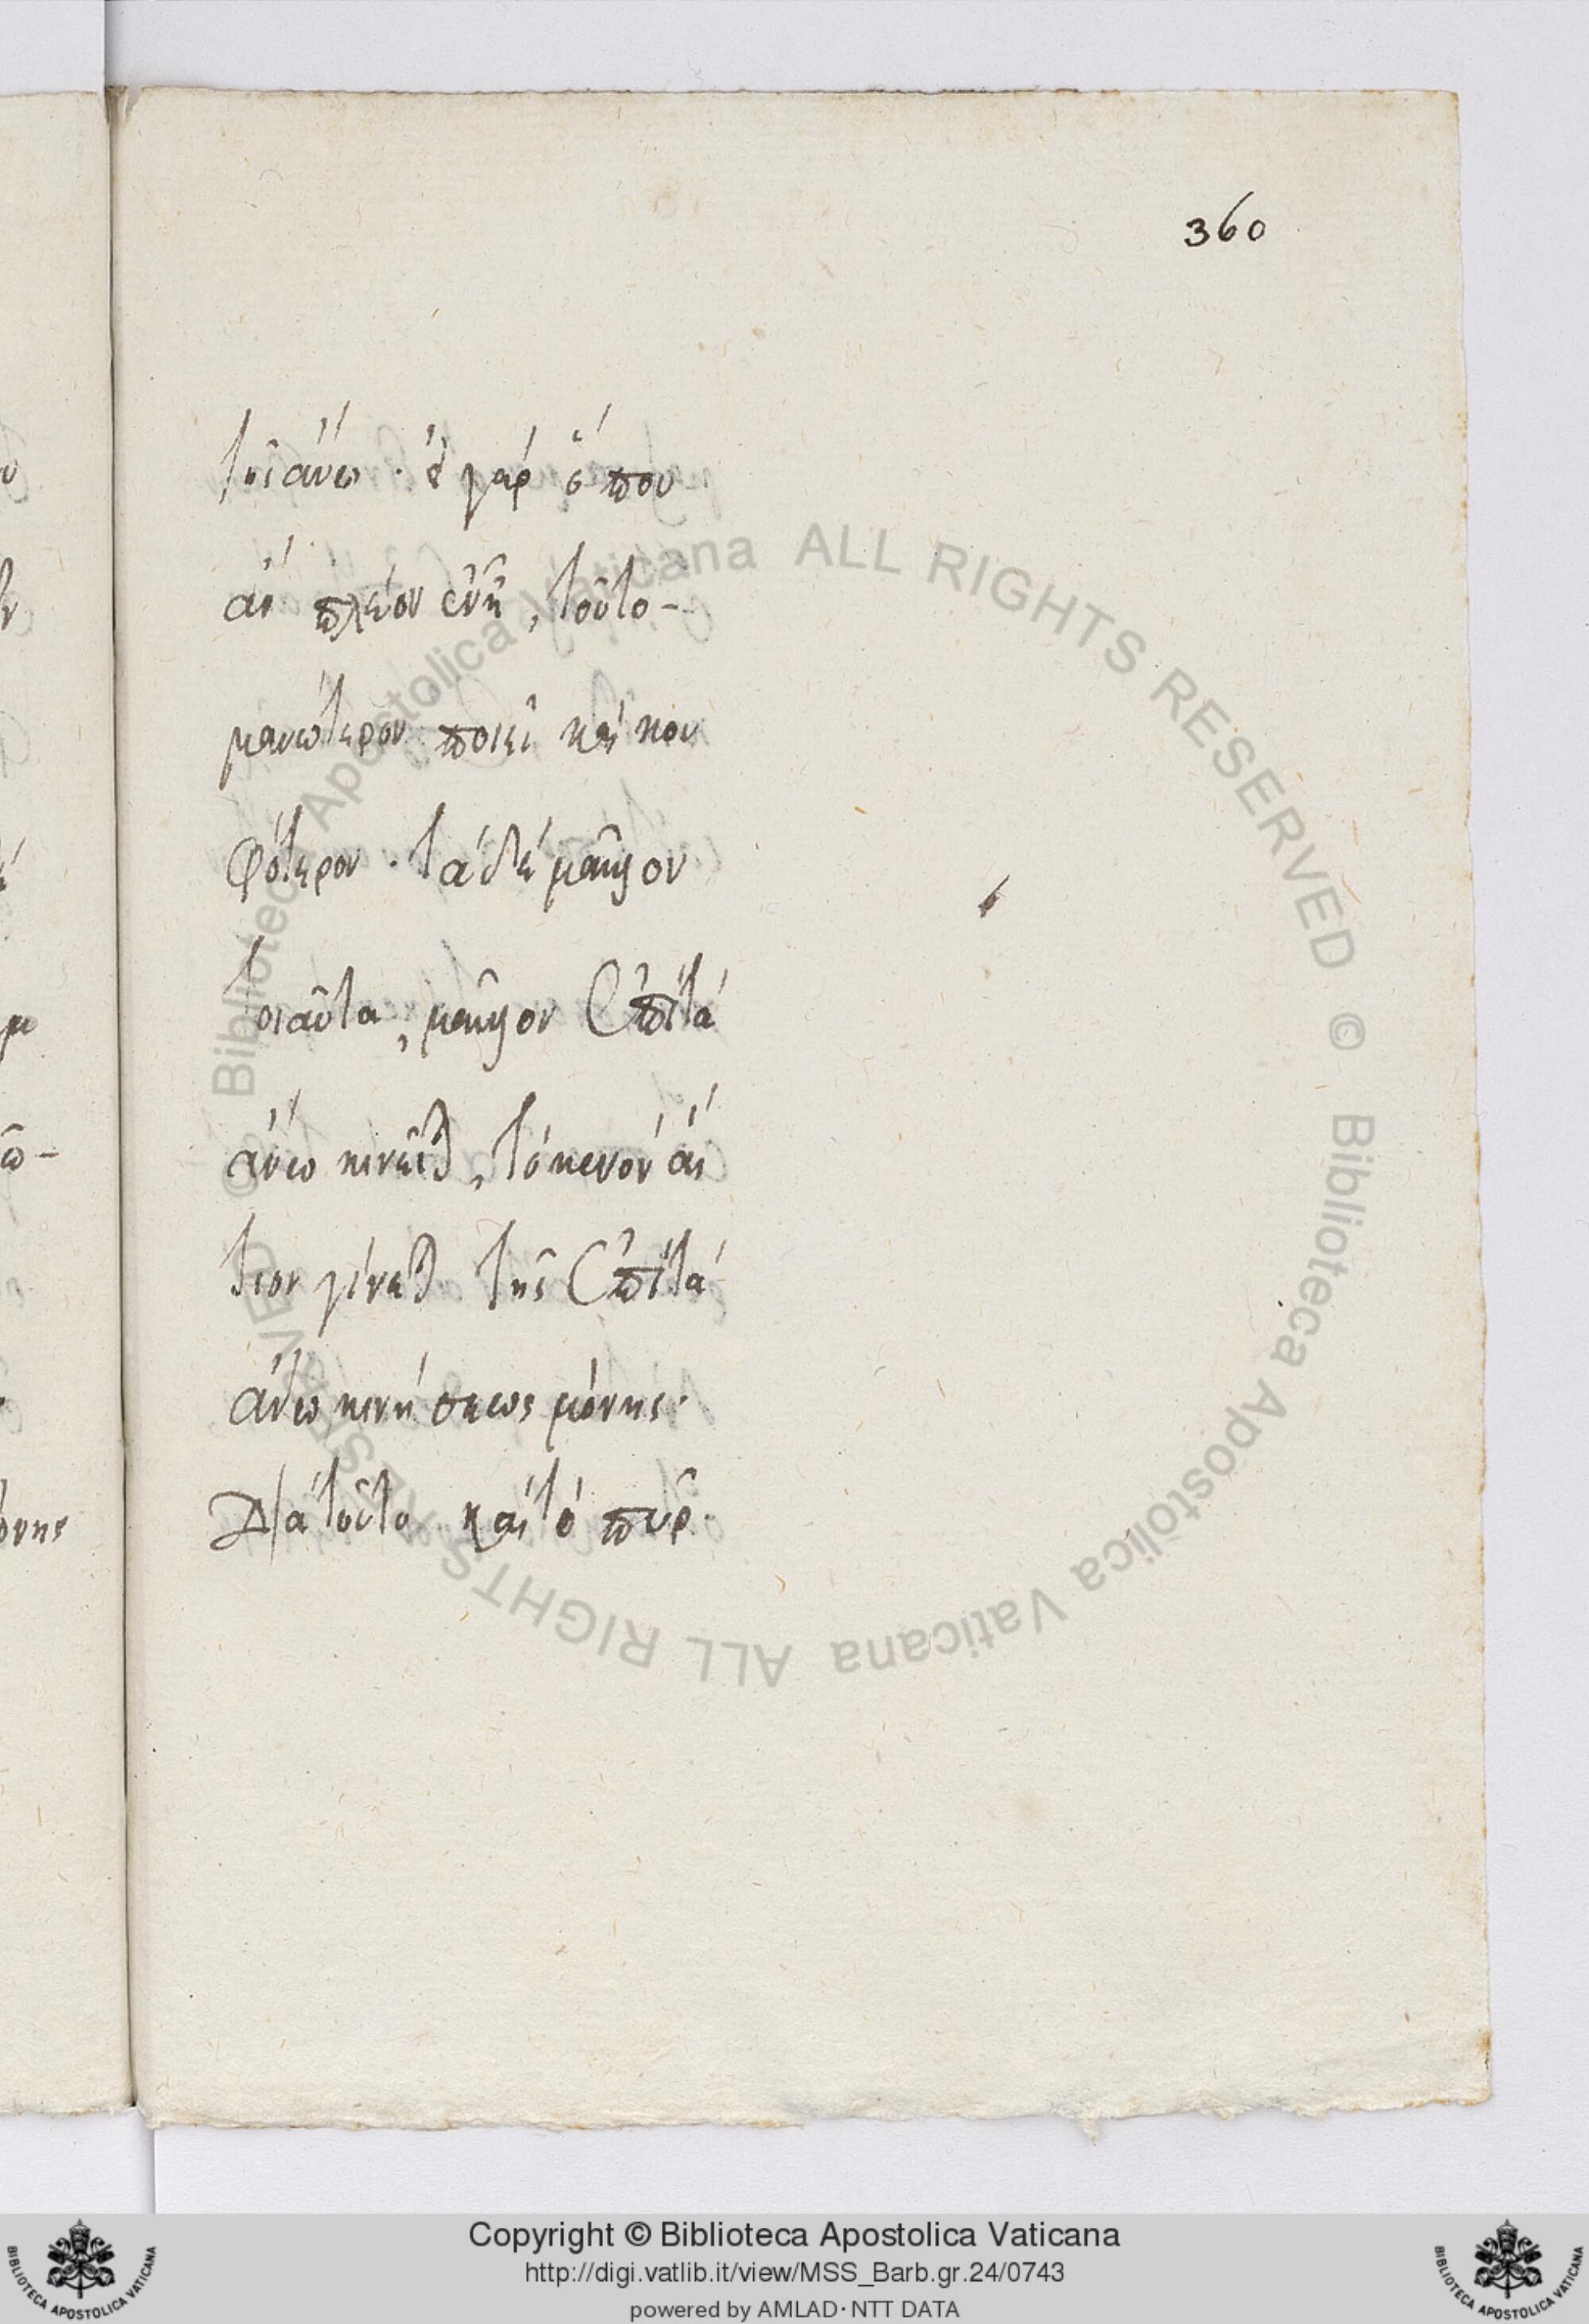 360
τοῖς ἄνω · εἰ γὰρ ὅπου
ἂν πλέον ἐνῇ, τοῦτο-
μανώτερον ποιεῖ καὶ κου
φότερον · τὰ δὲ μᾶλλον
τοιαῦτα, μᾶλλον ἐπὶ τὰ
ἄνω κινεῖται, τὸ κενὸν αἴ
τιον γίνεται τῆς ἐπὶ τὰ
ἄνω κινήσεως μόνης ·
Διὰ τοῦτο καὶ τὸ πῦρ ·
Copyright © Biblioteca Apostolica Vaticana
http://digi.vatlib.it/view/MSS_Barb.gr.24/0743
powered by AMLAD · NTT DATA
© Biblioteca Apostolica Vaticana ALL RIGHTS RESERVED
© Biblioteca Apostolica Vaticana ALL RIGHTS RESERVED
BIBLIOTECA APOSTOLICA VATICANA
BIBLIOTECA APOSTOLICA VATICANA